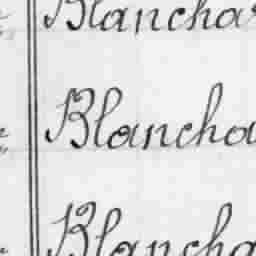 Blancha
Blancha
Blancha